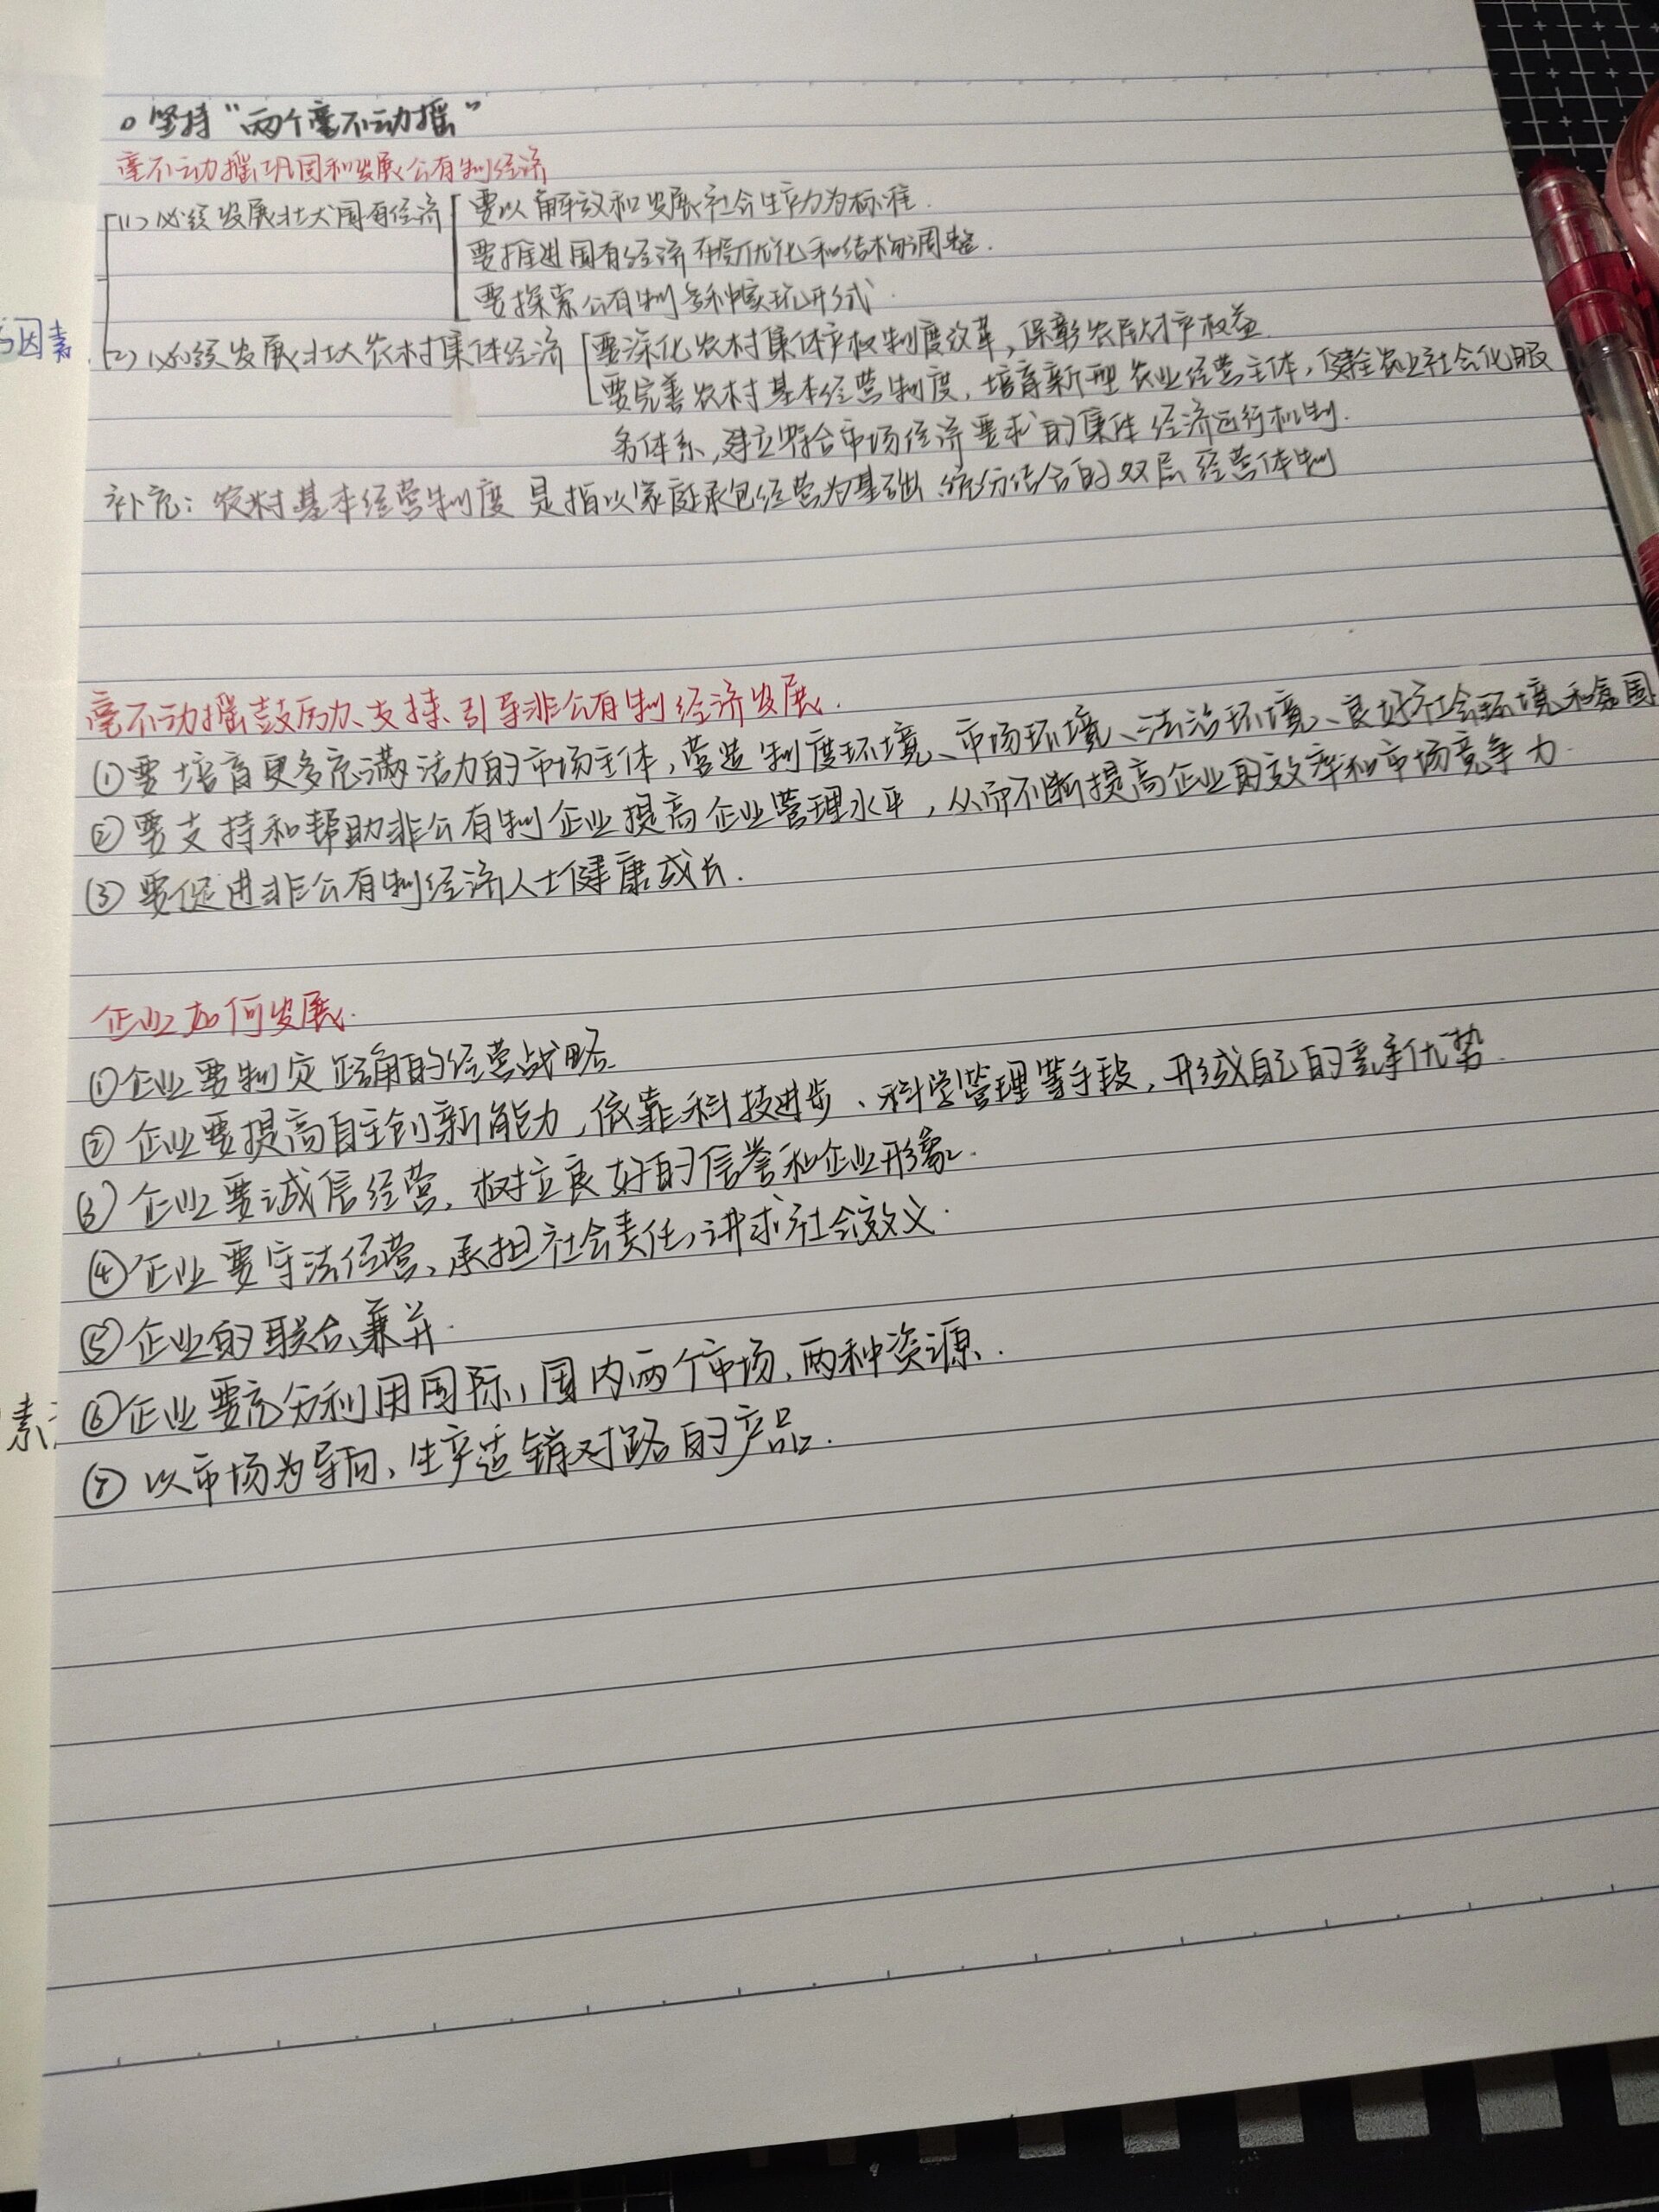 坚持“两个毫不动摇”
毫不动摇巩固和发展公有制经济
(1)必须发展壮大国有经济 要以解放和发展社会生产力为标准.
要推进国有经济布局优化和结构调整.
要探索公有制多种实现形式.
(2)必须发展壮大农村集体经济 要深化农村集体产权制度改革,保障农民财产权益
要完善农村基本经营制度,培育新型农业经营主体,健全农业社会化服
务体系,建立符合市场经济要求的集体经济运行机制.
补充:农村基本经营制度是指以家庭承包经营为基础、统分结合的双层经营体制
毫不动摇鼓励、支持、引导非公有制经济发展.
①要培育更多充满活力的市场主体,营造制度环境、市场环境、法治环境、良好社会环境和氛围
②要支持和帮助非公有制企业提高企业管理水平,从而不断提高企业的效率和市场竞争力.
③要促进非公有制经济人士健康成长.
企业如何发展.
①企业要制定正确的经营战略.
②企业要提高自主创新能力,依靠科技进步、科学管理等手段,形成自己的竞争优势.
③企业要诚信经营,树立良好的信誉和企业形象.
④企业要守法经营、承担社会责任,讲求社会效义.
⑤企业的联合、兼并.
⑥企业要充分利用国际,国内两个市场、两种资源.
⑦以市场为导向,生产适销对路的产品.
因素
素